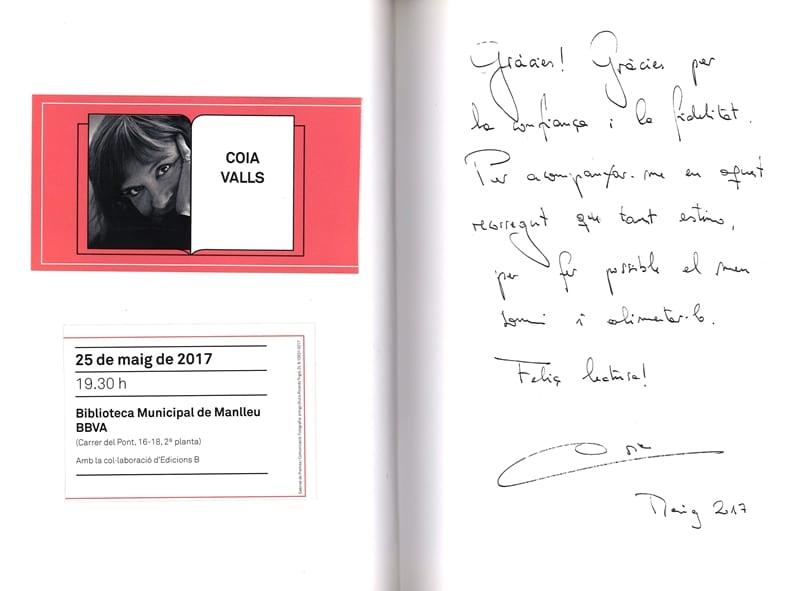 COIA
VALLS
25 de maig de 2017
19.30 h
Biblioteca Municipal de Manlleu
BBVA
(Carrer del Pont, 16-18, 2ª planta)
Amb la col·laboració d'Edicions B
Gràcies! Gràcies per
la confiança i la fidelitat.
Per acompanyar-me en aquest
recorregut que tant estimo,
per fer possible el meu
somni i alimentar-lo.
Feliç lectura!
Coia
Maig 2017